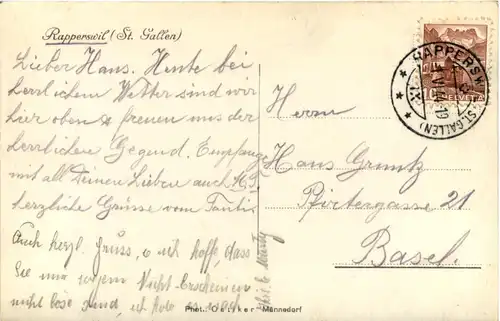 Rapperswil (St. Gallen)
Lieber Hans. Heute bei
herrlichem Wetter sind wir
hier oben & freuen uns der
herrlichen Gegend. Empfange
mit all Deinen Lieben auch
herzliche Grüsse vom Tanti
Auch herzl. Gruss, ich hoffe, dass
Sie mir wegem Nicht-Erscheinen
nicht böse sind, ich
Herrn
Hans Gruntz
Pfirtergasse 21
Basel.
RAPPERSWIL
(ST. GALLEN)
10
HELVETIA
Phot.: Oetiker Männedorf